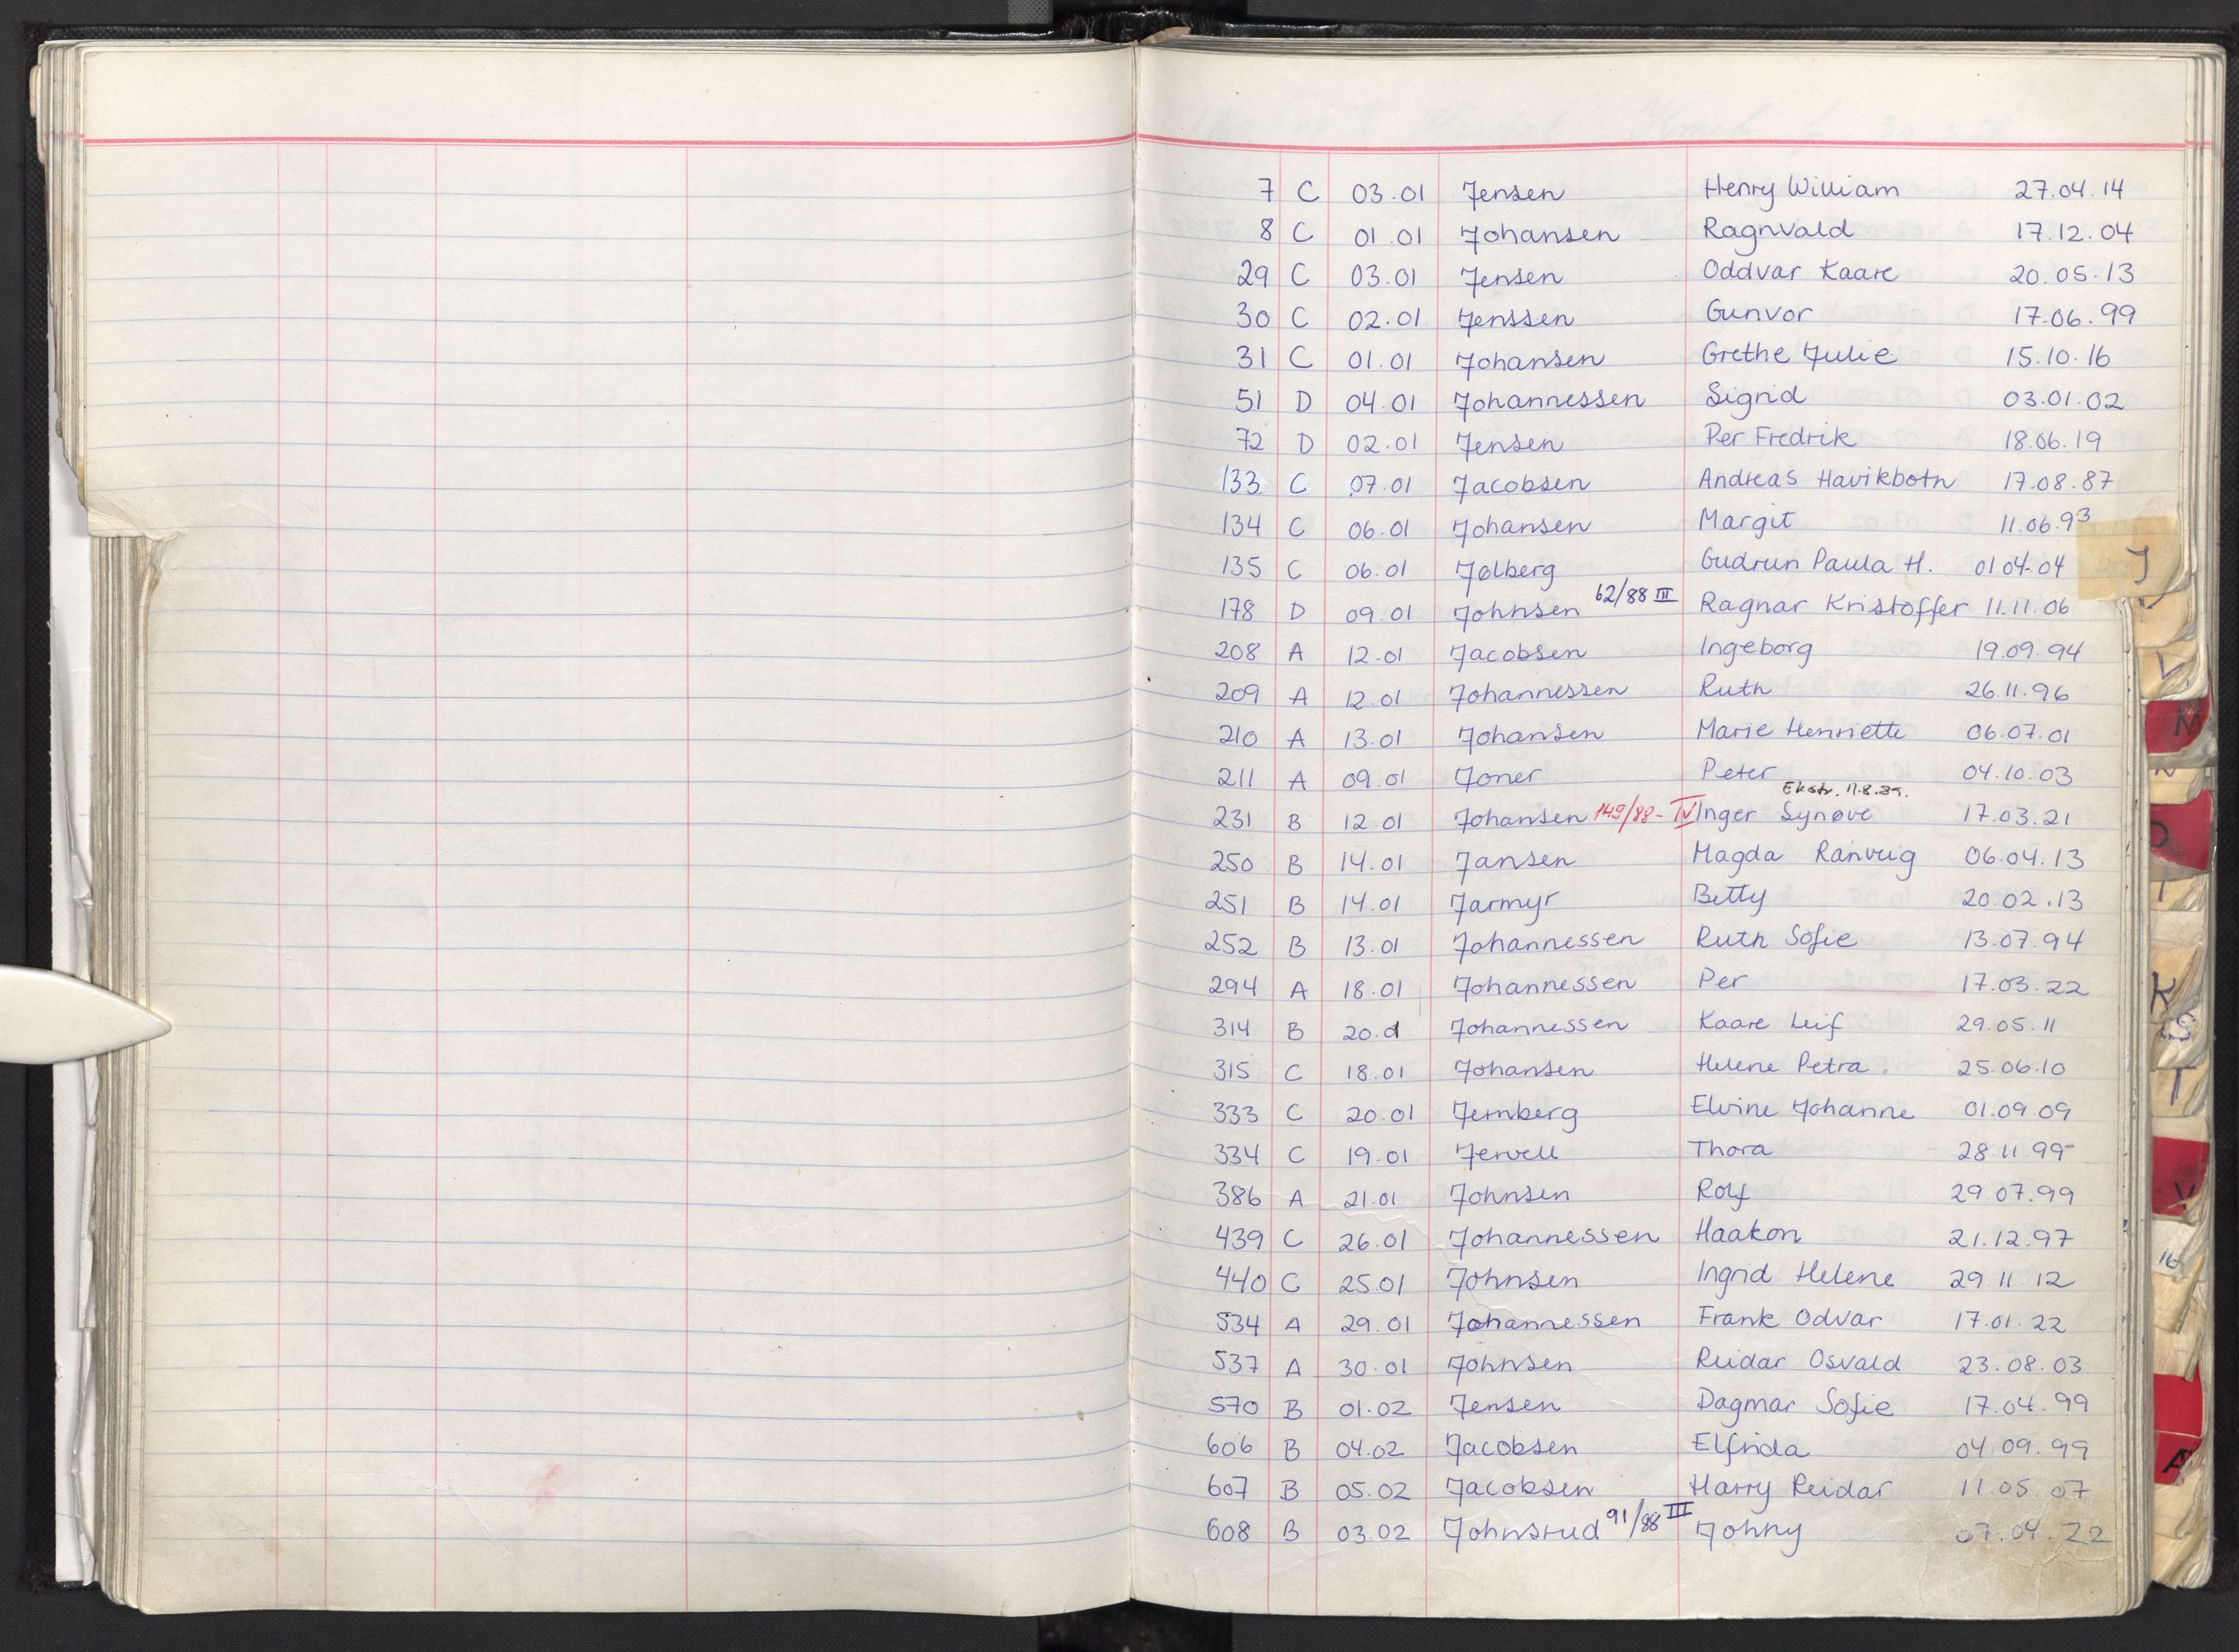 7 C 03.01 Jensen Henry William 27.04.14
8 C 01.01 Johansen Ragnvald 17.12.04
29 C 03.01 Jensen Oddvar Kaare 20.05.13
30 C 02.01 Jenssen Gunvor 17.06.99
31 C 01.01 Johansen Grethe Julie 15.10.16
51 D 04.01 Johannessen Sigrid 03.01.02
72 D 02.01 Jensen Per Fredrik 18.06.19
133 C 07.01 Jacobsen Andreas Havikbotn 17.08.87
134 C 06.01 Johansen Margit 11.06.93
135 C 06.01 Jølberg Gudrun Paula H. 01.04.04
J
178 D 09.01 Johnsen 62/88 III Ragnar Kristoffer 11.11.06
208 A 12.01 Jacobsen Ingeborg 19.09.94
209 A 12.01 Johannessen Ruth 26.11.96
210 A 13.01 Johansen Marie Henriette 06.07.01
211 A 09.01 Joner Peter 04.10.03
Ekstr. 11.8.89.
231 B 12.01 Johansen 149/88-IV Inger Synøve 17.03.21
250 B 14.01 Jansen Magda Ranveig 06.04.13
251 B 14.01 Jarmyr Betty 20.02.13
252 B 13.01 Johannessen Ruth Sofie 13.07.94
294 A 18.01 Johannessen Per 17.03.22
314 B 20.01 Johannessen Kaare Leif 29.05.11
315 C 18.01 Johansen Helene Petra 25.06.10
333 C 20.01 Jernberg Elvine Johanne 01.09.09
334 C 19.01 Jervell Thora 28.11.99
386 A 21.01 Johnsen Rolf 29.07.99
439 C 26.01 Johannessen Haakon 21.12.97
440 C 25.01 Johnsen Ingrid Helene 29.11.12
534 A 29.01 Johannessen Frank Odvar 17.01.22
537 A 30.01 Johnsen Reidar Osvald 23.08.03
570 B 01.02 Jensen Dagmar Sofie 17.04.99
606 B 04.02 Jacobsen Elfrida 04.09.99
607 B 05.02 Jacobsen Harry Reidar 11.05.07
608 B 03.02 Johnsrud 91/88 III Johny 07.04.22